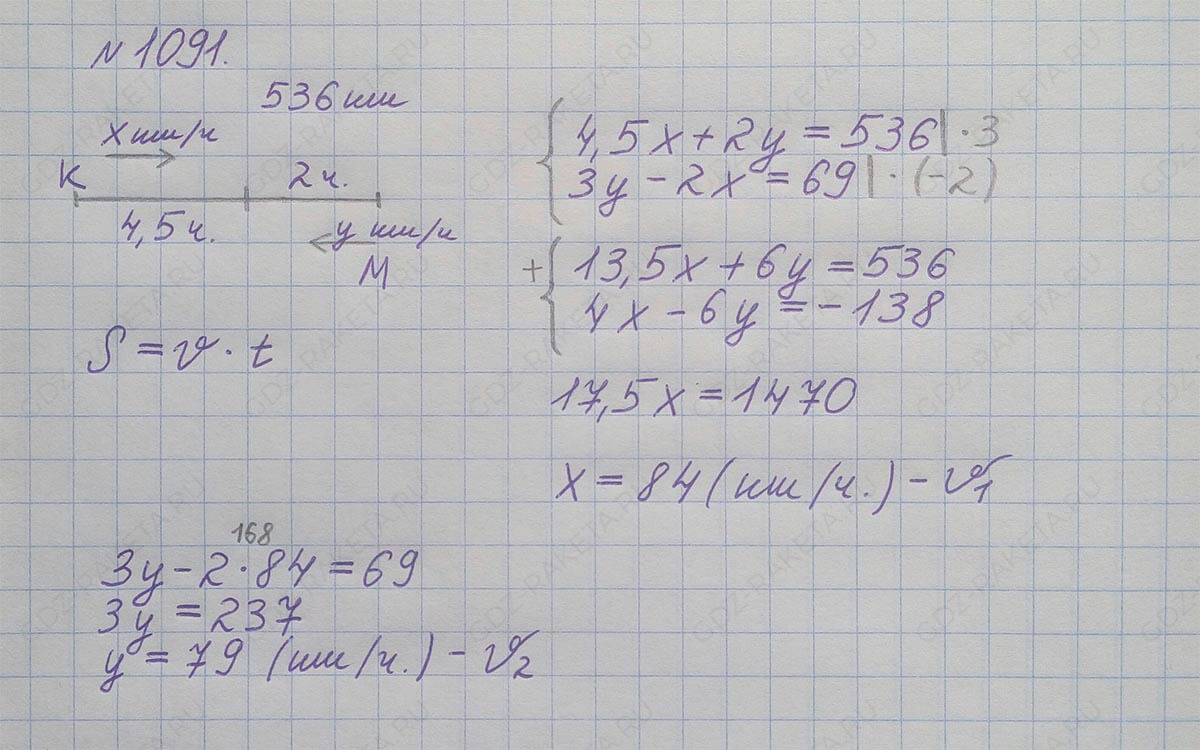 N 1091.
536 км
x км/ч
K
2 ч.
4,5 ч.
y км/ч
M
S = v · t
4,5x + 2y = 536 | · 3
3y − 2x = 69 | · (−2)
+
13,5x + 6y = 536
4x − 6y = −138
17,5x = 1470
x = 84 (км/ч.) − v₁
168
3y − 2 · 84 = 69
3y = 237
y = 79 (км/ч.) − v₂
GDZ-RAKETA.RU